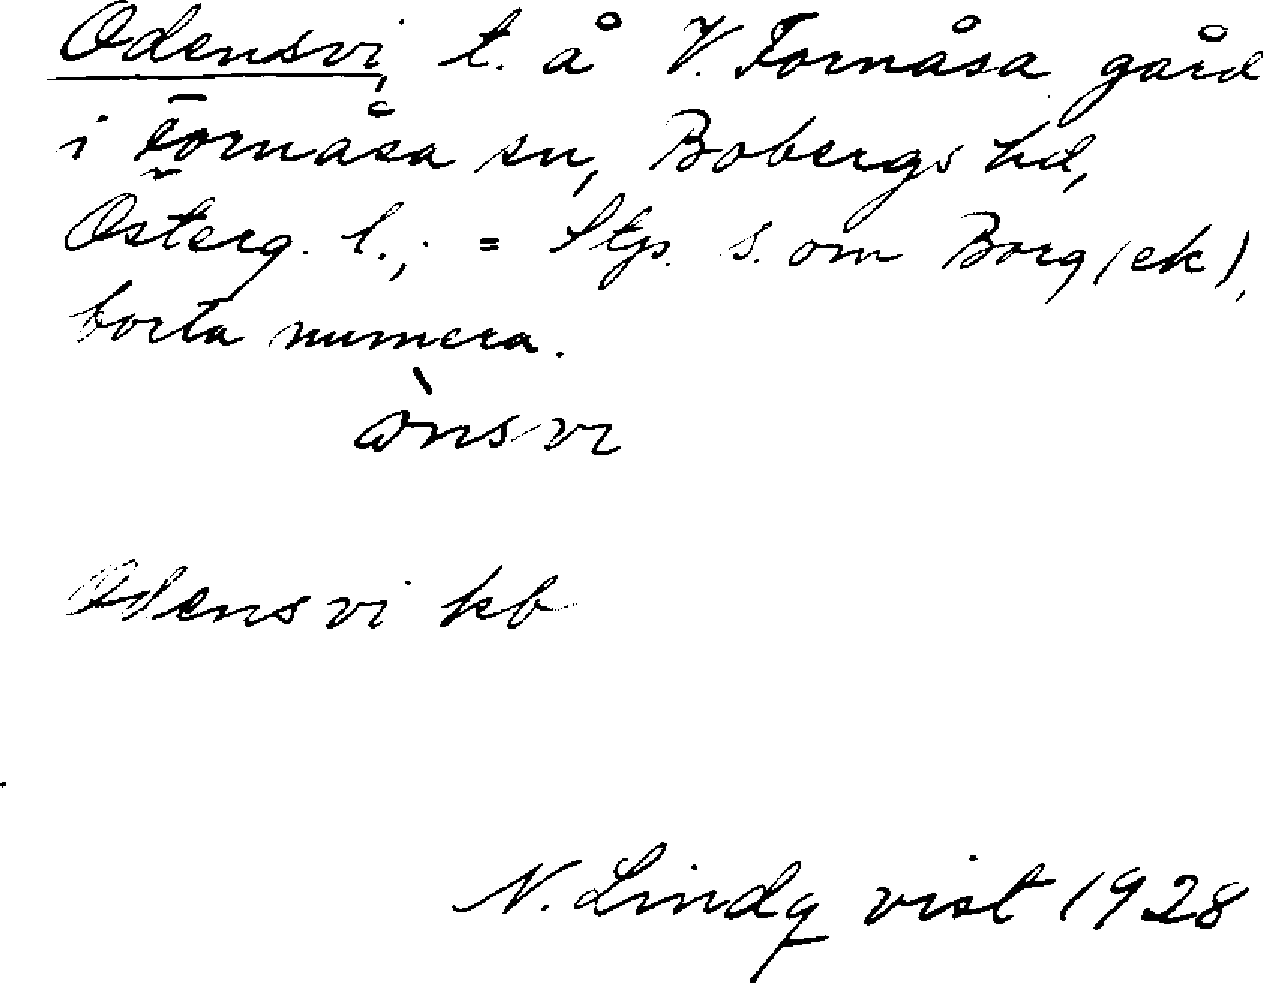 Odensvi, t. å V. Fornåsa gård
i Fornåsa sn, Bobergs hd,
Österg. l.; = Stp. s. om Borg (ek),
borta numera.
ònsvi
Odensvi kb
N. Lindqvist 1928